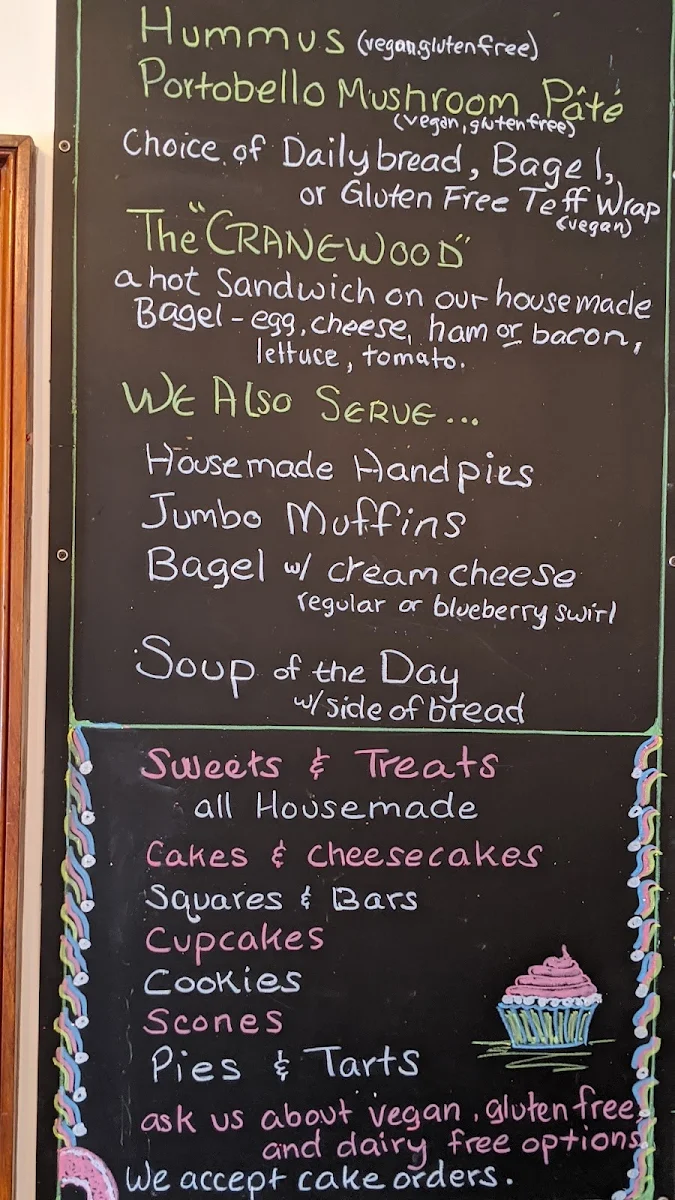 Hummus (vegan, gluten free)
Portobello Mushroom Pâté
(vegan, gluten free)
Choice of Daily bread, Bagel,
or Gluten Free Teff Wrap
(vegan)
The "CRANEWOOD"
a hot Sandwich on our housemade
Bagel - egg, cheese, ham or bacon,
lettuce, tomato.
WE Also SERVE...
Housemade Handpies
Jumbo Muffins
Bagel w/ cream cheese
regular or blueberry swirl
Soup of the Day
w/ side of bread
Sweets & Treats
all Housemade
Cakes & Cheesecakes
Squares & Bars
Cupcakes
Cookies
Scones
Pies & Tarts
ask us about vegan, gluten free
and dairy free options
We accept cake orders.